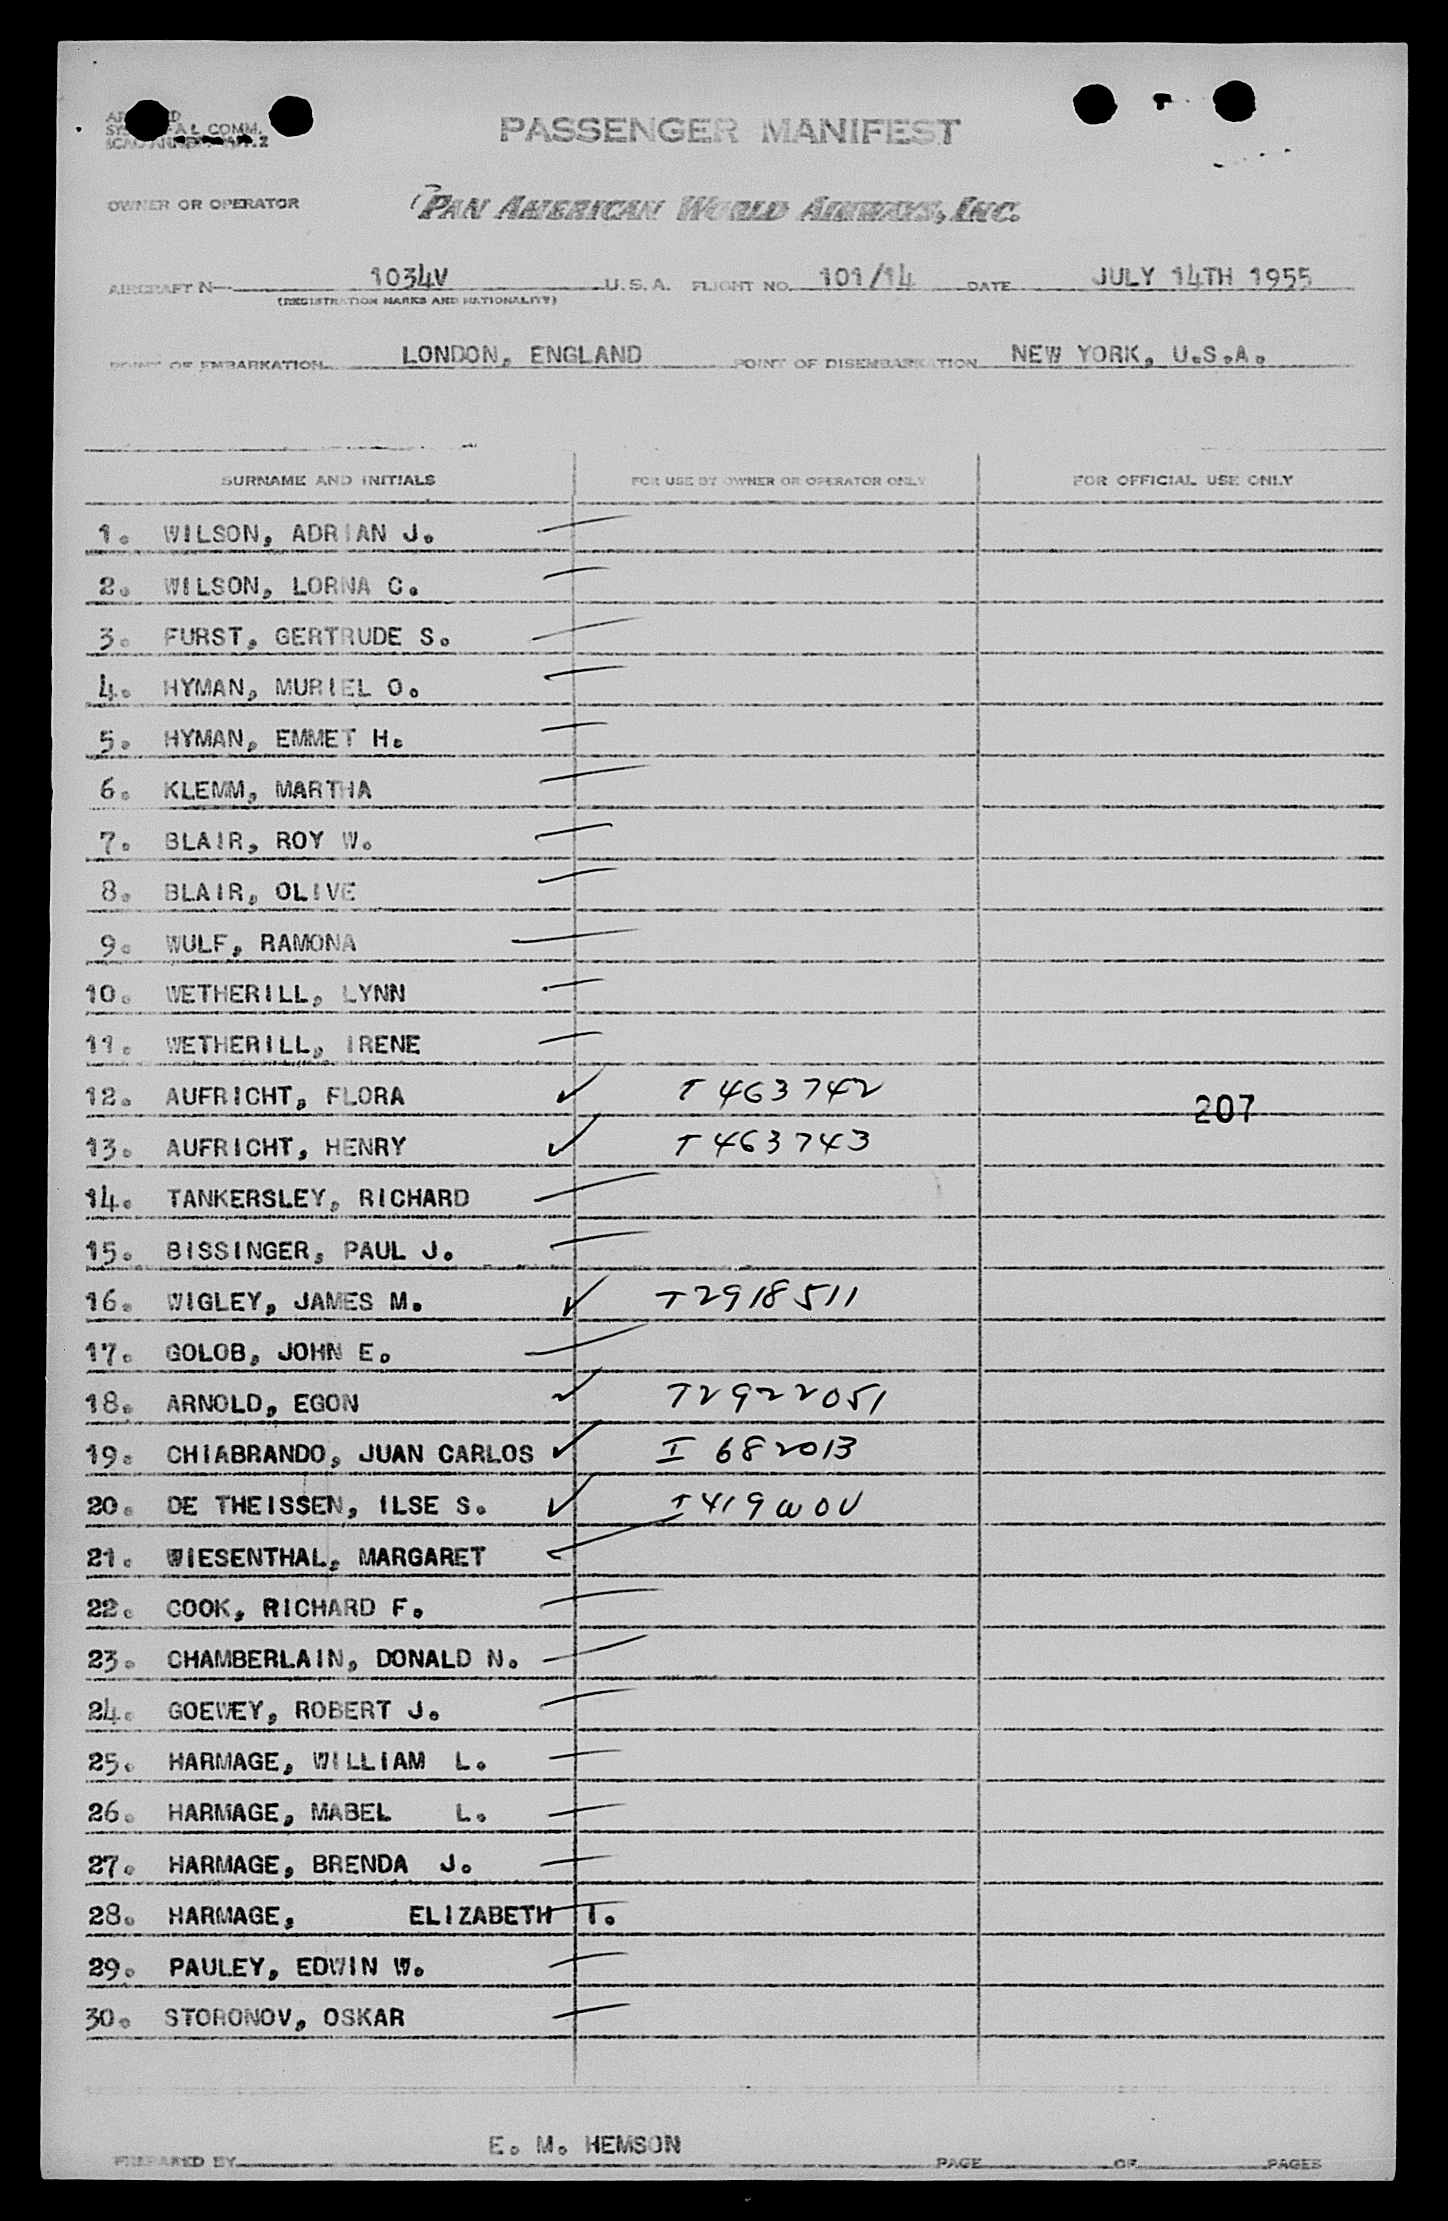 PASSENGER MANIFEST
OWNER OR OPERATOR PAN AMERICAN WORLD AIRWAYS, INC.
AIRCRAFT N- 1034V U.S.A. FLIGHT NO. 101/14 DATE JULY 14TH 1955
(REGISTRATION MARKS AND NATIONALITY)
POINT OF EMBARKATION LONDON, ENGLAND POINT OF DISEMBARKATION NEW YORK, U.S.A.
SURNAME AND INITIALS FOR USE BY OWNER OR OPERATOR ONLY FOR OFFICIAL USE ONLY
1. WILSON, ADRIAN J.
2. WILSON, LORNA C.
3. FURST, GERTRUDE S.
4. HYMAN, MURIEL O.
5. HYMAN, EMMET H.
6. KLEMM, MARTHA
7. BLAIR, ROY W.
8. BLAIR, OLIVE
9. WULF, RAMONA
10. WETHERILL, LYNN
11. WETHERILL, IRENE
12. AUFRICHT, FLORA T 463742
207
13. AUFRICHT, HENRY T 463743
14. TANKERSLEY, RICHARD
15. BISSINGER, PAUL J.
16. WIGLEY, JAMES M. T2918511
17. GOLOB, JOHN E.
18. ARNOLD, EGON T2922051
19. CHIABRANDO, JUAN CARLOS I 682013
20. DE THEISSEN, ILSE S.
21. WIESENTHAL, MARGARET
22. COOK, RICHARD F.
23. CHAMBERLAIN, DONALD N.
24. GOEWEY, ROBERT J.
25. HARMAGE, WILLIAM L.
26. HARMAGE, MABEL L.
27. HARMAGE, BRENDA J.
28. HARMAGE, ELIZABETH I.
29. PAULEY, EDWIN W.
30. STORONOV, OSKAR
E. M. HEMSON
PREPARED BY PAGE OF PAGES